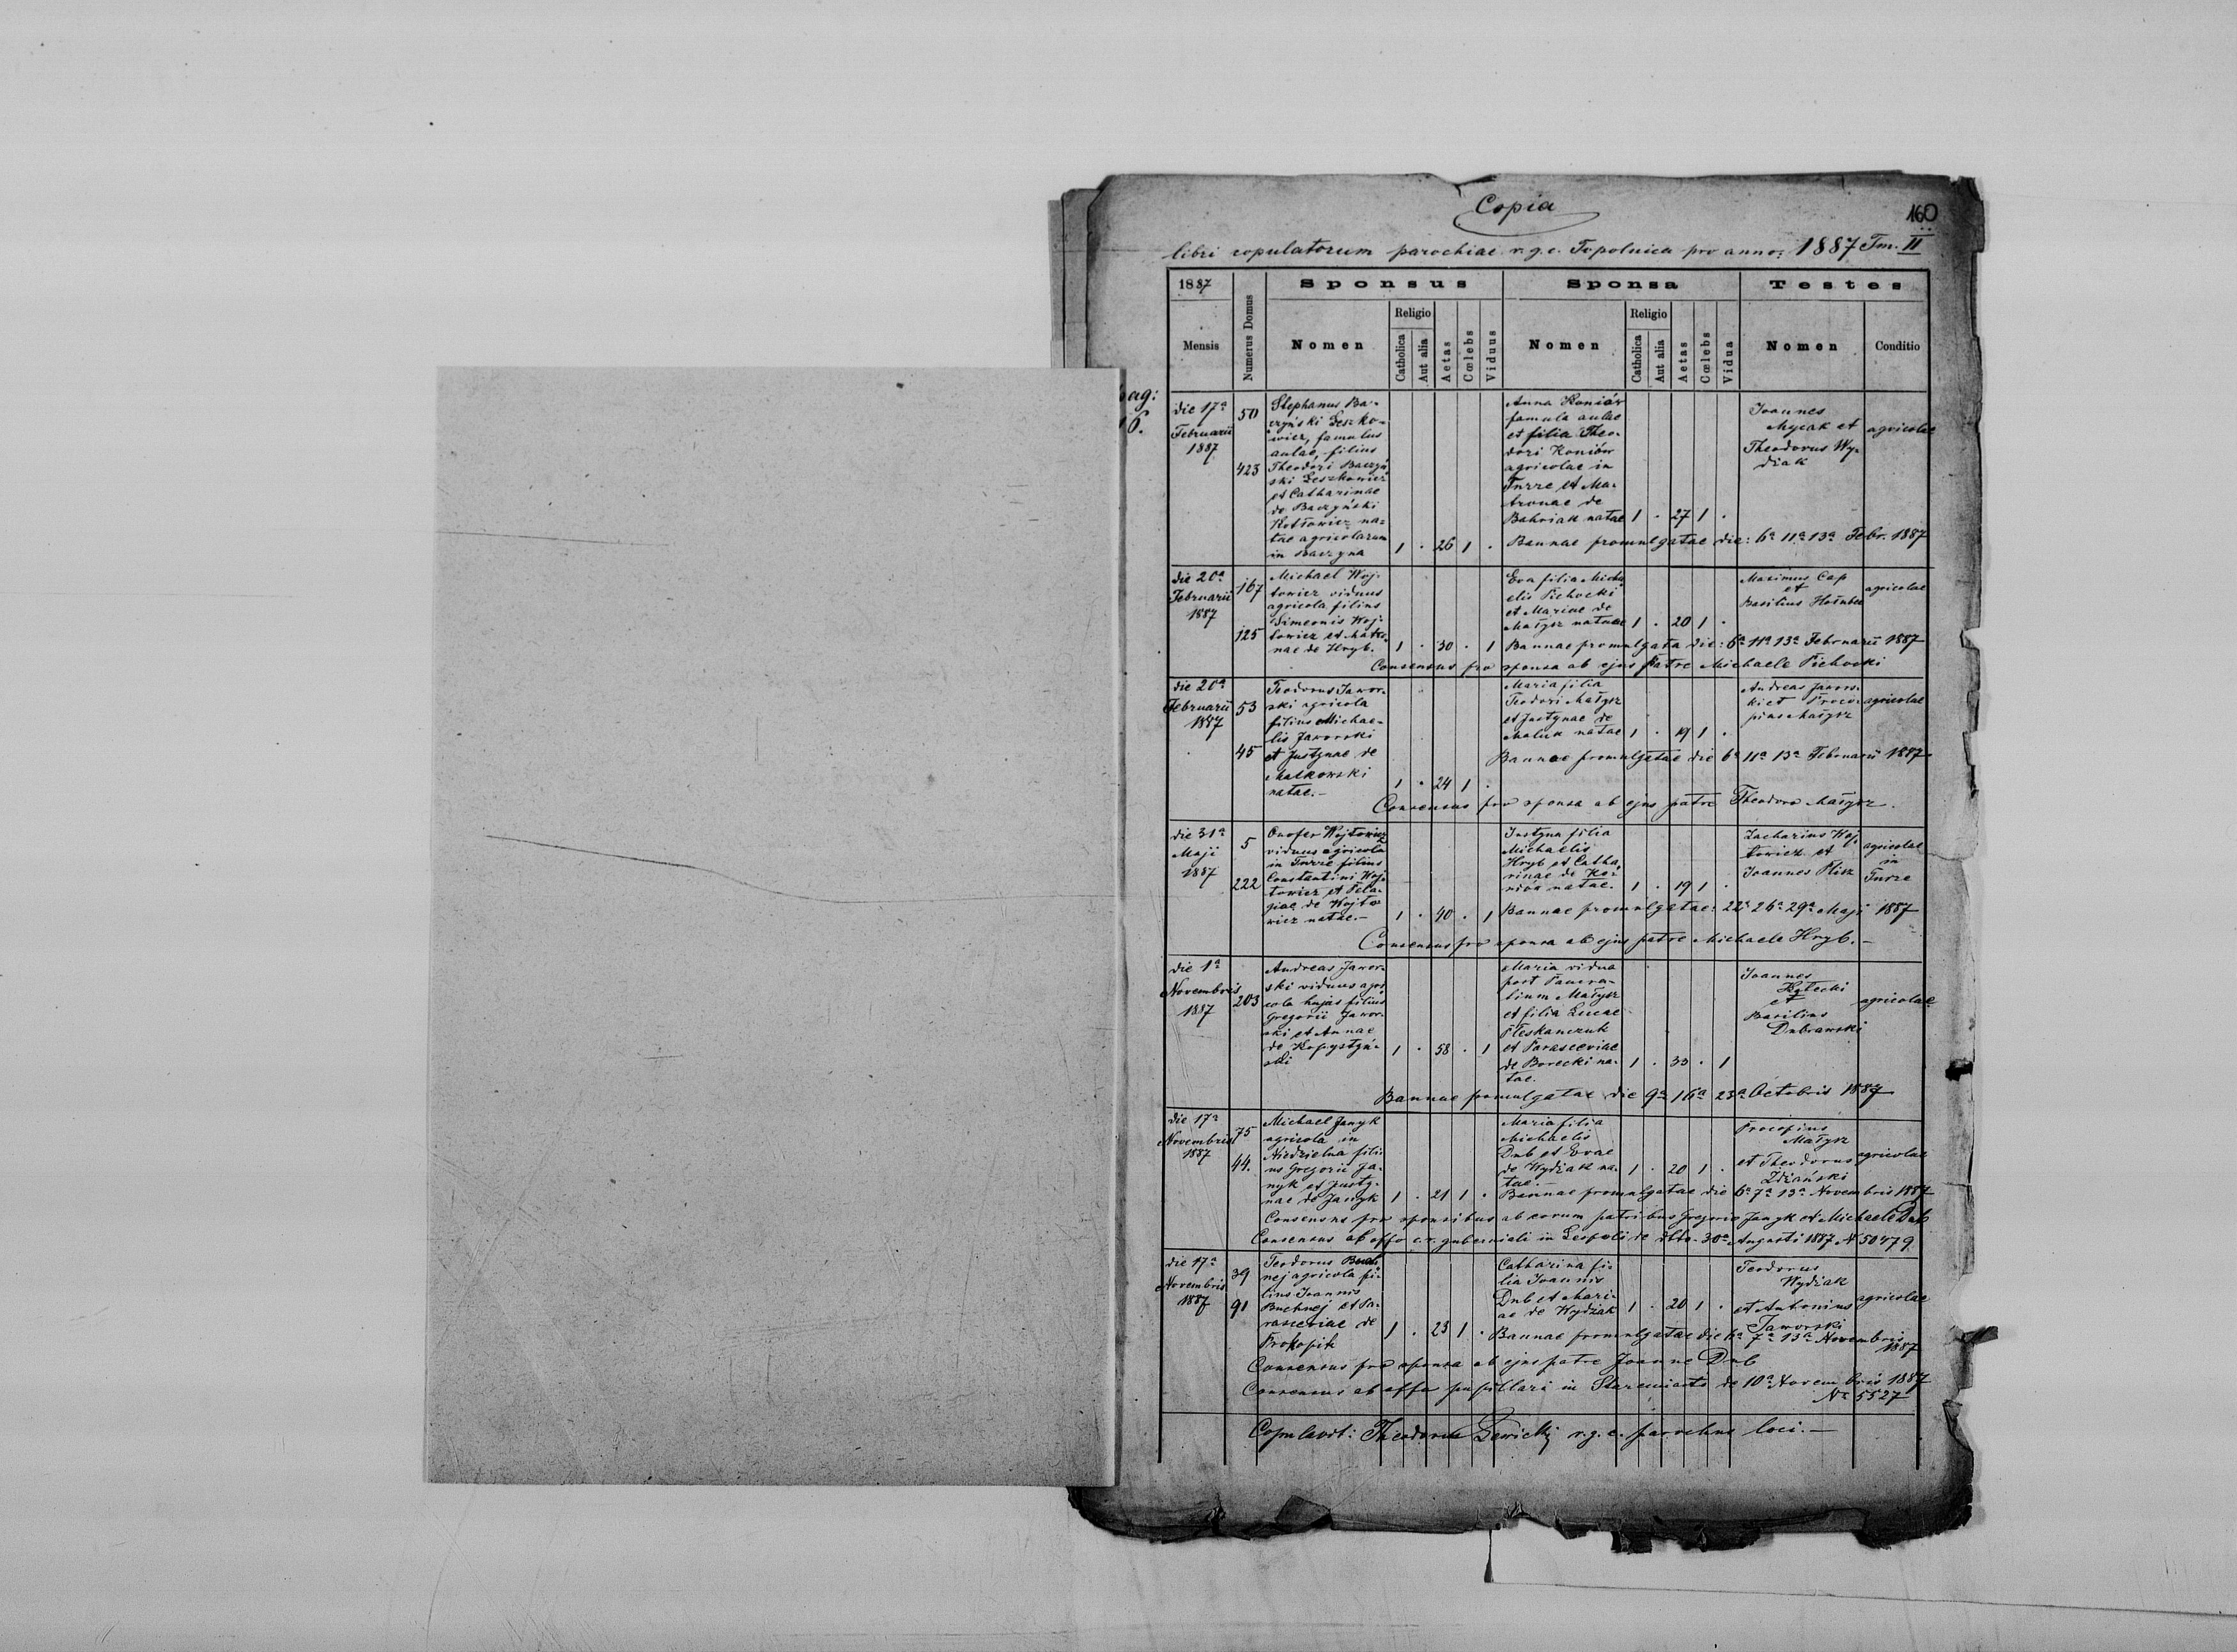 Copia
160
libri copulatorum parochiae r.g.c. Topolnica pro anno: 1887 Tm. II
1887
Mensis
Numerus Domus
Sponsus
Nomen
Religio
Catholica
Aut alia
Aetas
Cœlebs
Viduus
Sponsa
Nomen
Religio
Catholica
Aut alia
Aetas
Cœlebs
Vidua
Testes
Nomen
Conditio
ag:
6.
die 17ª
Februarii
1887
50
423
Stephanus Ba-
czyński Leszko-
wicz, famulus
aulae, filius
Theodori Baczyń
ski Leszkowicz
et Catharinae
de Baczyński
Kotłowicz na-
tae agricolarum
in Baczyna
1 . 26 1 .
Anna Koniów
famula aulae
et filia Theo-
dori Koniów
agricolae in
Turze et Ma-
tronae de
Bahriak natae
1 . 27 1 .
Joannes
Mycak et
Theodorus Wy-
diak
agricolae
Bannae promulgatae die: 6ª 11ª 13ª Febr. 1887
die 20ª
Februarii
1887
167
125
Michael Woj-
towicz viduus
agricola filius
Simeonis Woj-
towicz et Matro-
nae de Hryb.
1 . 30 . 1
Eva filia Micha
elis Pichocki
et Mariae de
Małysz natae
1 . 20 1 .
Maximus Cap
et
Basilius Hołubec
agricolae
Bannae promulgata die: 6ª 11ª 13ª Februarii 1887
Consensus pro sponsa ab ejus Patre Michaele Pichocki
die 20ª
Februarii
1887
53
45
Teodorus Jawor-
ski agricola
filius Michae-
lis Jaworski
et Justynae de
Małkowski
natae.-
1 . 24 1 .
Maria filia
Teodori Małysz
et Justynae de
Maluk natae
1 . 19 1 .
Andreas Jawors-
ki et Proco-
pius Małysz
agricolae
Bannae promulgatae die 6ª 11ª 13ª Februarii 1887
Consensus pro sponsa ab ejus patre Theodoro Małysz.
die 31ª
Maji
1887
5
222
Onofer Wojtowicz
viduus agricola
in Turze filius
Constantini Woj-
towicz et Pela-
giae de Wojto-
wicz natae.-
1 . 40 . 1
Justyna filia
Michaelis
Hryb et Catha-
rinae de Ko-
niów natae.
1 . 19 1 .
Zacharius Woj-
towicz et
Joannes Plisz
agricolae
in
Turze
Bannae promulgatae: 22ª 26ª 29ª Maji 1887
Consensus pro sponsa ab ejus patre Michaele Hryb.-
die 1ª
Novembris
1887
203
Andreas Jawor-
ski viduus agri
cola hujas filius
Gregorii Jawor-
ski et Annae
de Kopystyń-
ski
1 . 58 . 1
Maria vidua
post Pancra-
tium Małysz
et filia Lucae
Pleskanczuk
et Parasceviae
de Borecki na-
tae.
1 . 33 . 1
Joannes
et
Basilius
Dubrawski
agricolae
Bannae promulgatae die 9ª 16ª 23ª Octobris 1887
die 17ª
Novembris
1887
75
44.
Michael Janyk
agricola in
Niedzielna fili-
us Gregorii Ja-
nyk et Justy-
nae de Janyk
1 . 21 1 .
Maria filia
Michaelis
Dub et Evae
de Wydiak na-
tae.-
1 . 20 1 .
Procopius
Małysz
et Theodorus
Zdiański
agricolae
Bannae promulgatae die 6ª 7ª 13ª Novembris 1887
Consensus pro sponsibus ab eorum patribus Gregorio Janyk et Michaele Dub
Consensus ab offo c.r. guberniali in Leopoli de dtto. 30ª Augusti 1887 N 50479
die 17ª
Novembris
1887
39
91
Teodorus Buch
nej agricola fi-
lius Joannis
Buchnej et Pa-
rasceviae de
Prokopik
1 . 23 1 .
Catharina fi-
lia Joannis
Dub et Mari-
ae de Wydiak
1 . 20 1 .
Teodorus
Wydiak
et Antonius
Jaworski
agricolae
Bannae promulgatae die 6ª 7ª 13ª Novembris
1887
Consensus pro sponsa ab ejus patre Joanne Dub
Consensus ab offo pupillari in Staremiasto de 10ª Novembris 1887
Nº 5527
Copulavit: Theodorus Lewicki r.g.c. parochus loci.-